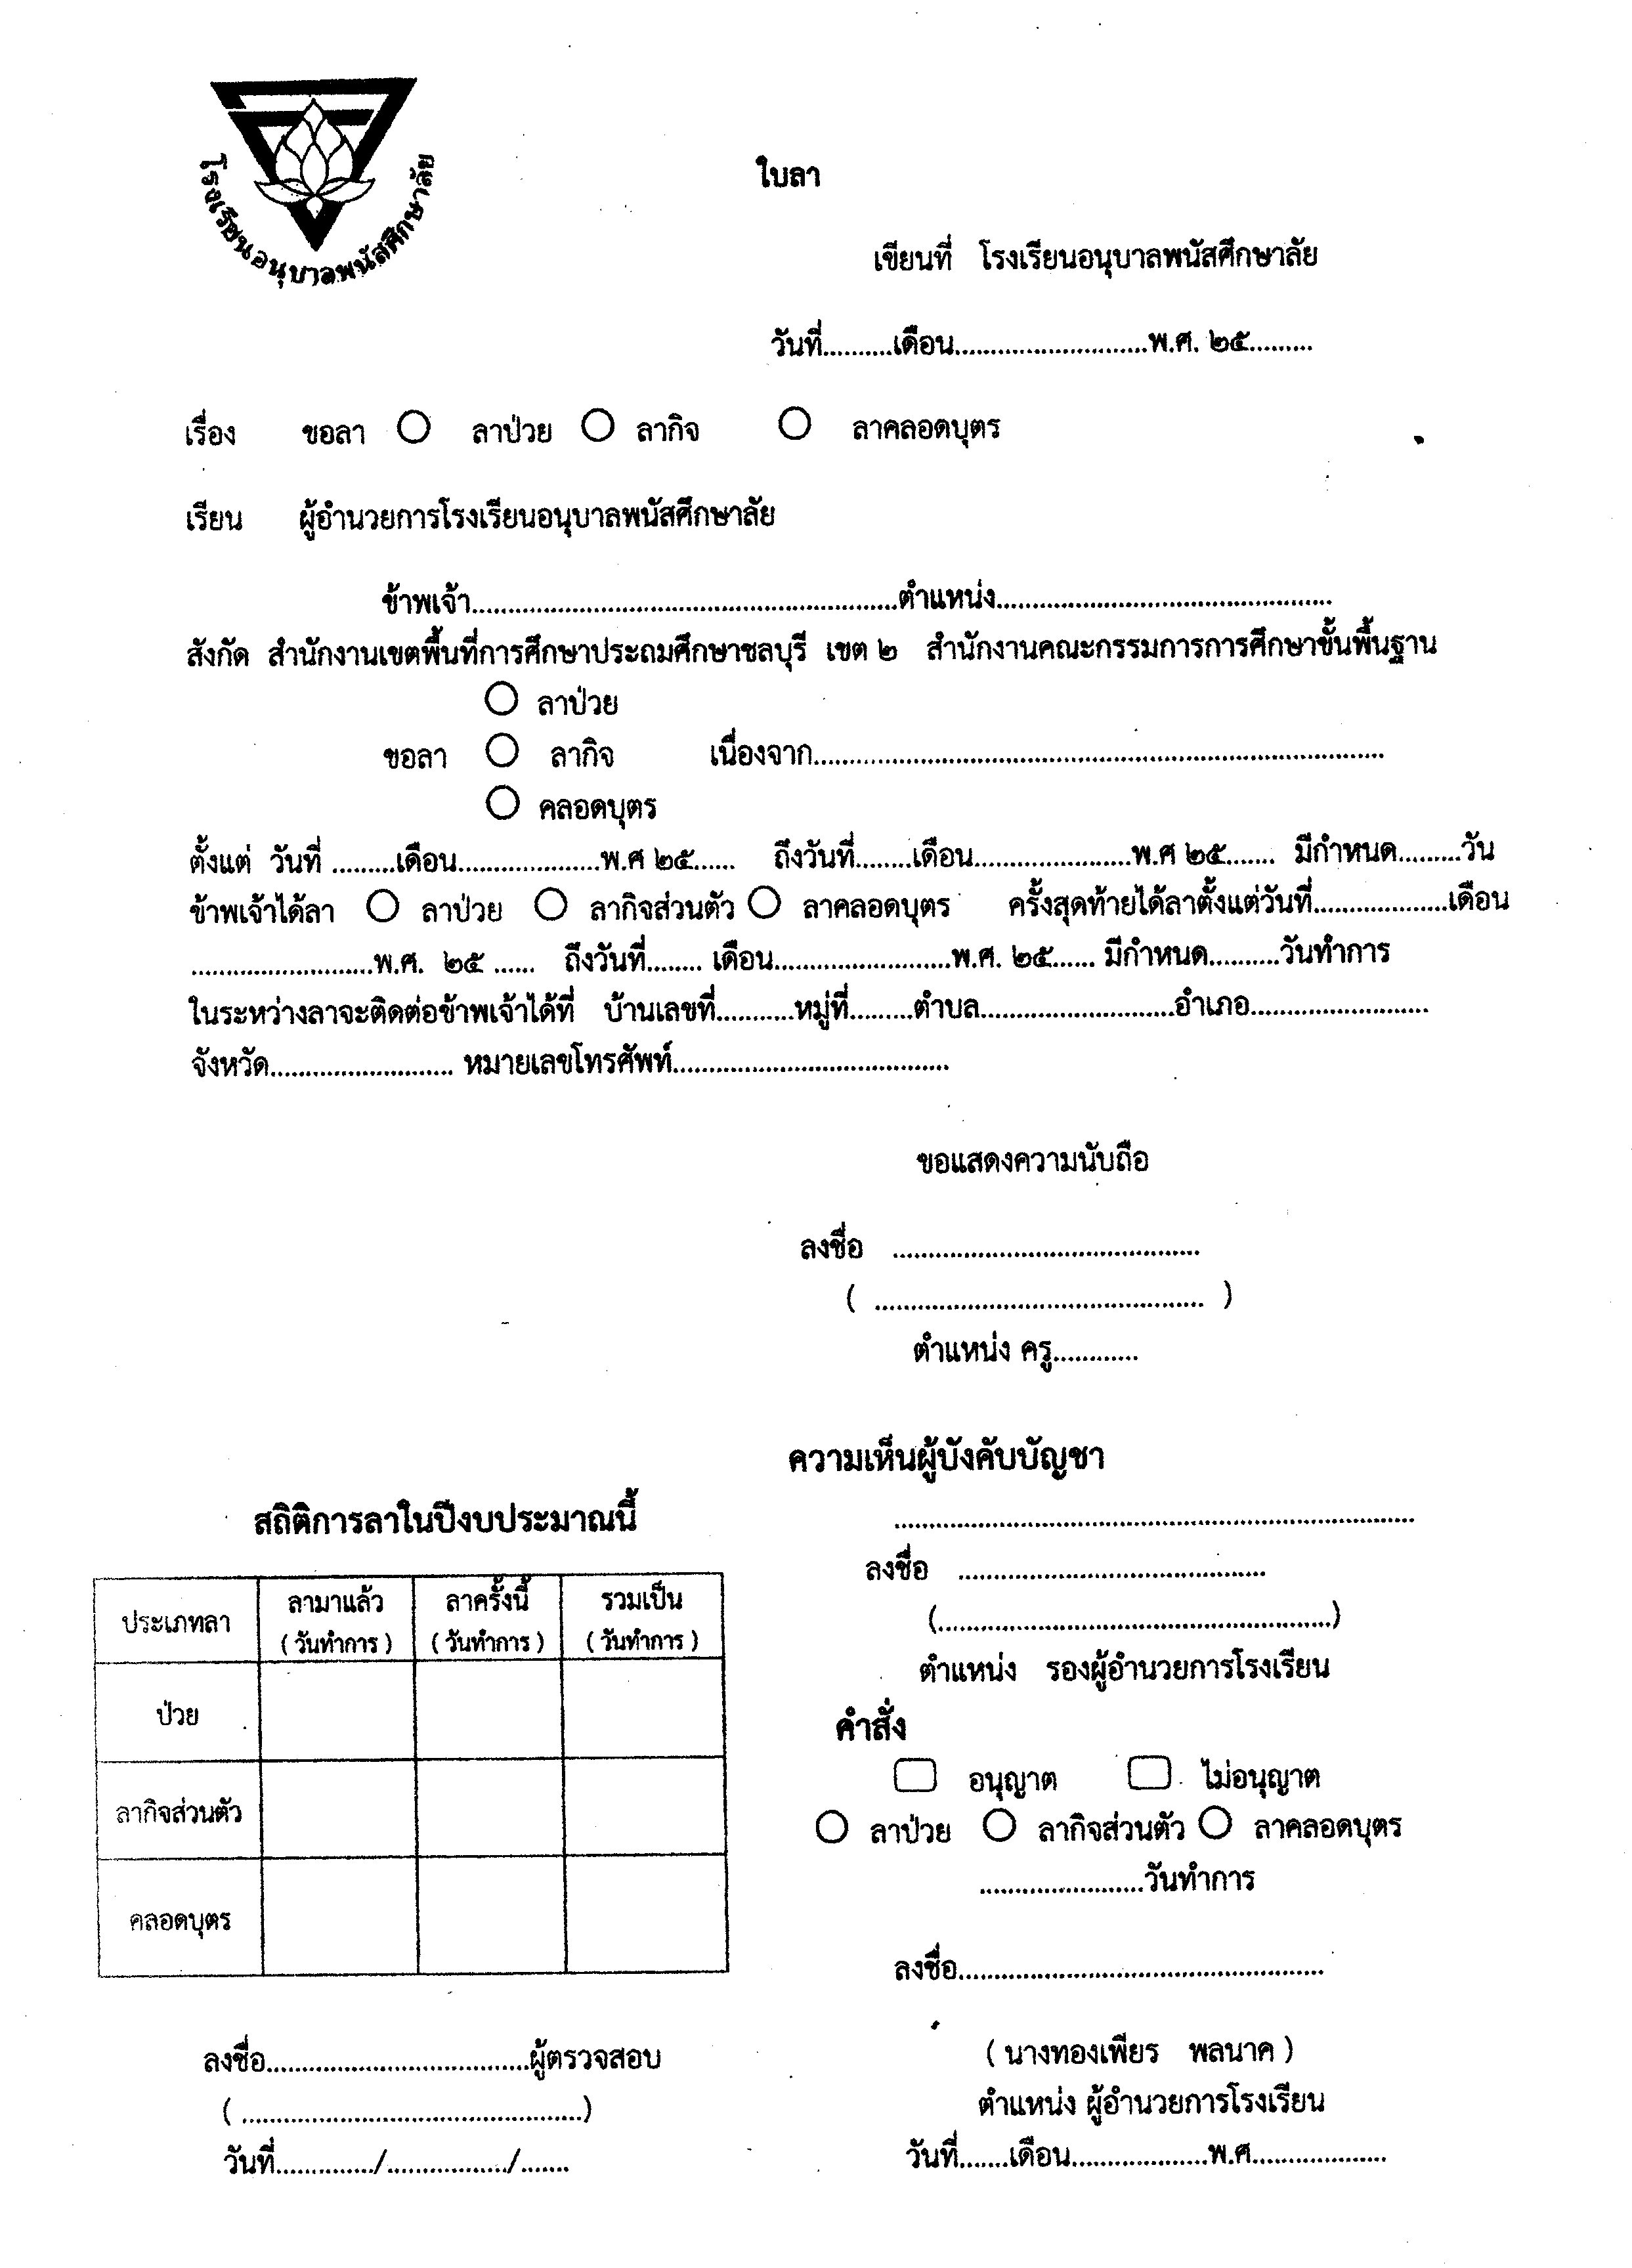 โรงเรียนอนุบาลพนัสศึกษาลัย
ใบลา
เขียนที่ โรงเรียนอนุบาลพนัสศึกษาลัย
วันที่..........เดือน...........................พ.ศ. ๒๕.........
เรื่อง ขอลา ○ ลาป่วย ○ ลากิจ ○ ลาคลอดบุตร
เรียน ผู้อำนวยการโรงเรียนอนุบาลพนัสศึกษาลัย
ข้าพเจ้า............................................................ตำแหน่ง...............................................
สังกัด สำนักงานเขตพื้นที่การศึกษาประถมศึกษาชลบุรี เขต ๒ สำนักงานคณะกรรมการการศึกษาขั้นพื้นฐาน
○ ลาป่วย
ขอลา ○ ลากิจ เนื่องจาก................................................................................
○ คลอดบุตร
ตั้งแต่ วันที่ .........เดือน....................พ.ศ ๒๕...... ถึงวันที่........เดือน......................พ.ศ ๒๕....... มีกำหนด.........วัน
ข้าพเจ้าได้ลา ○ ลาป่วย ○ ลากิจส่วนตัว ○ ลาคลอดบุตร ครั้งสุดท้ายได้ลาตั้งแต่วันที่...................เดือน
..........................พ.ศ. ๒๕ ...... ถึงวันที่........ เดือน.........................พ.ศ. ๒๕...... มีกำหนด..........วันทำการ
ในระหว่างลาจะติดต่อข้าพเจ้าได้ที่ บ้านเลขที่...........หมู่ที่.........ตำบล...........................อำเภอ.........................
จังหวัด.......................... หมายเลขโทรศัพท์.......................................
ขอแสดงความนับถือ
ลงชื่อ ...........................................
( .............................................. )
ตำแหน่ง ครู............
ความเห็นผู้บังคับบัญชา
.........................................................................
ลงชื่อ ...........................................
(.......................................................)
ตำแหน่ง รองผู้อำนวยการโรงเรียน
คำสั่ง
▢ อนุญาต ▢ ไม่อนุญาต
○ ลาป่วย ○ ลากิจส่วนตัว ○ ลาคลอดบุตร
.......................วันทำการ
ลงชื่อ...................................................
( นางทองเพียร พลนาค )
ตำแหน่ง ผู้อำนวยการโรงเรียน
วันที่.......เดือน...................พ.ศ...................
สถิติการลาในปีงบประมาณนี้
ประเภทลา ลามาแล้ว ลาครั้งนี้ รวมเป็น
( วันทำการ ) ( วันทำการ ) ( วันทำการ )
ป่วย
ลากิจส่วนตัว
คลอดบุตร
ลงชื่อ.....................................ผู้ตรวจสอบ
( ................................................)
วันที่............../................./.......